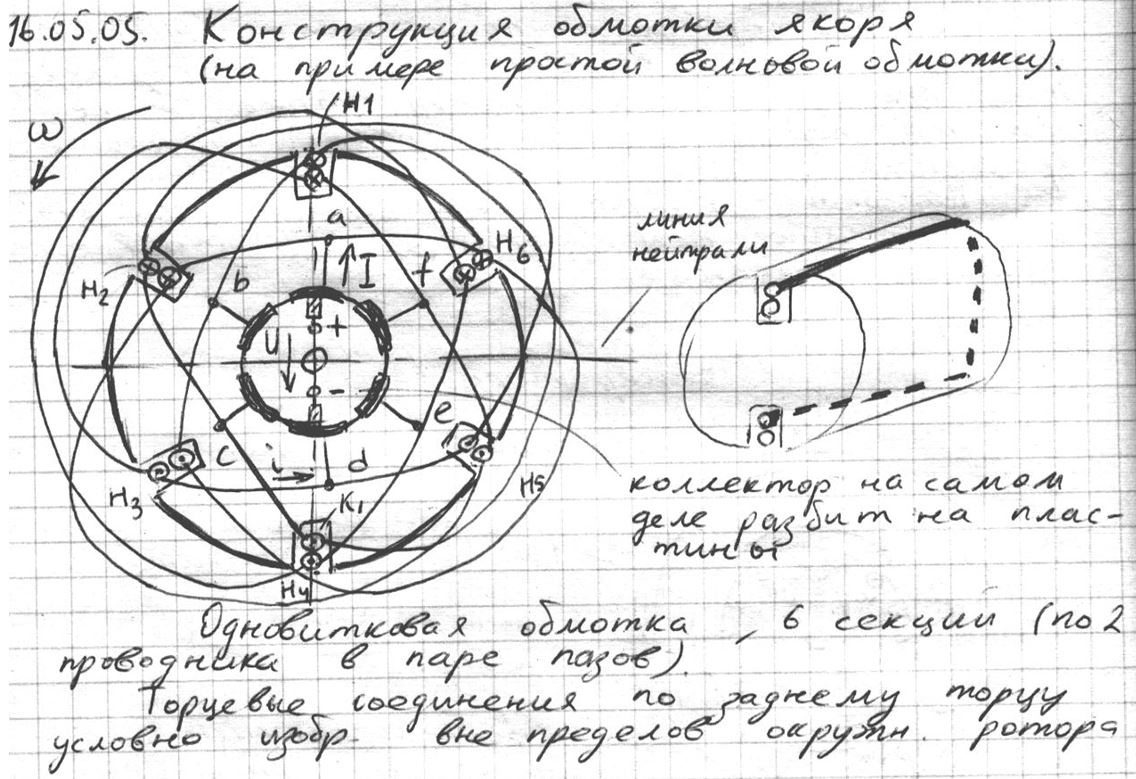 16.05.05. Конструкция обмотки якоря
(на примере простой волновой обмотки).
ω
H1
a
линия
нейтрали
H6
I
f
b
H2
+
U
-
e
c
i
d
H3
K1
H5
коллектор на самом
деле разбит на плас-
тины
H4
Одновитковая обмотка, 6 секций (по 2
проводника в паре пазов).
Торцевые соединения по заднему торцу
условно изобр. вне пределов окружн. ротора